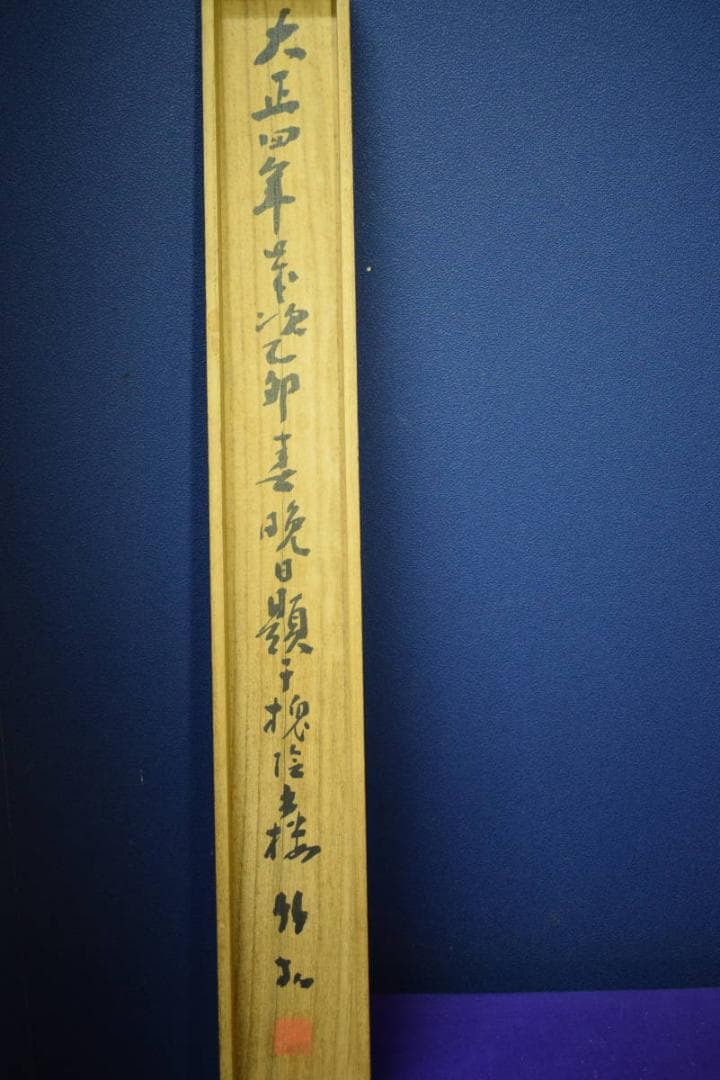 大正四年歳次乙卯春晩日題于槐陰書楼 竹